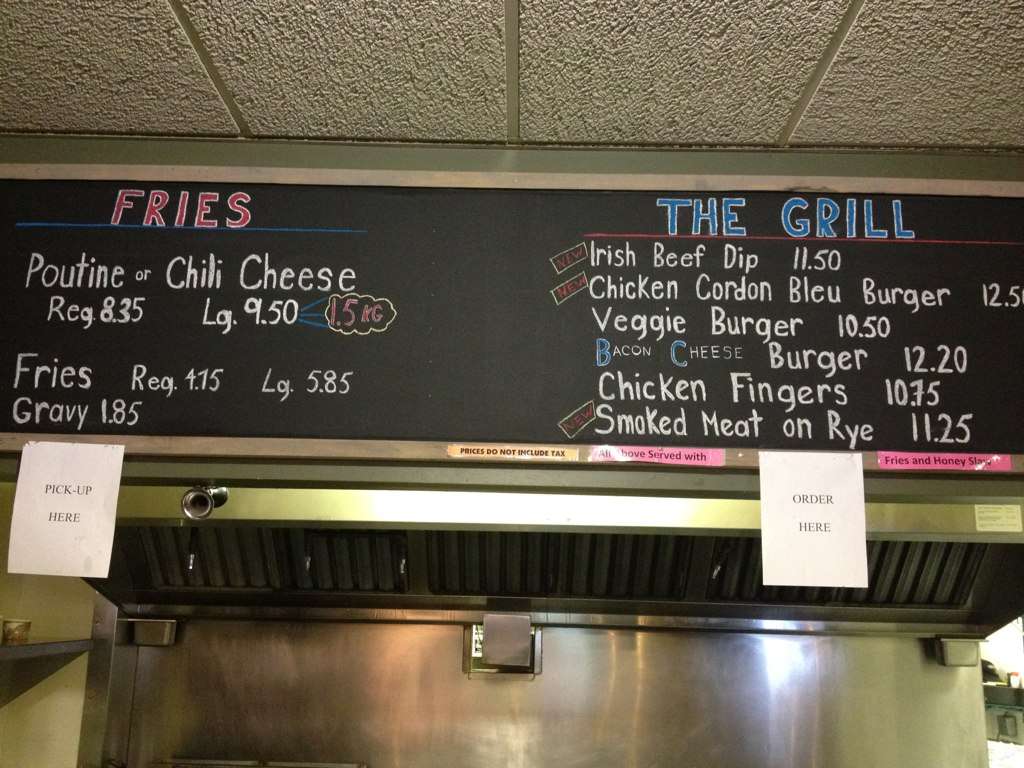 FRIES
Poutine or Chili Cheese
Reg. 8.35 Lg. 9.50 1.5 KG
Fries Reg. 4.15 Lg. 5.85
Gravy 1.85
THE GRILL
NEW Irish Beef Dip 11.50
NEW Chicken Cordon Bleu Burger
Veggie Burger 10.50
BACON CHEESE Burger 12.20
Chicken Fingers 10.75
NEW Smoked Meat on Rye 11.25
PRICES DO NOT INCLUDE TAX
All Above Served with
Fries and Honey Slaw
PICK-UP
HERE
ORDER
HERE